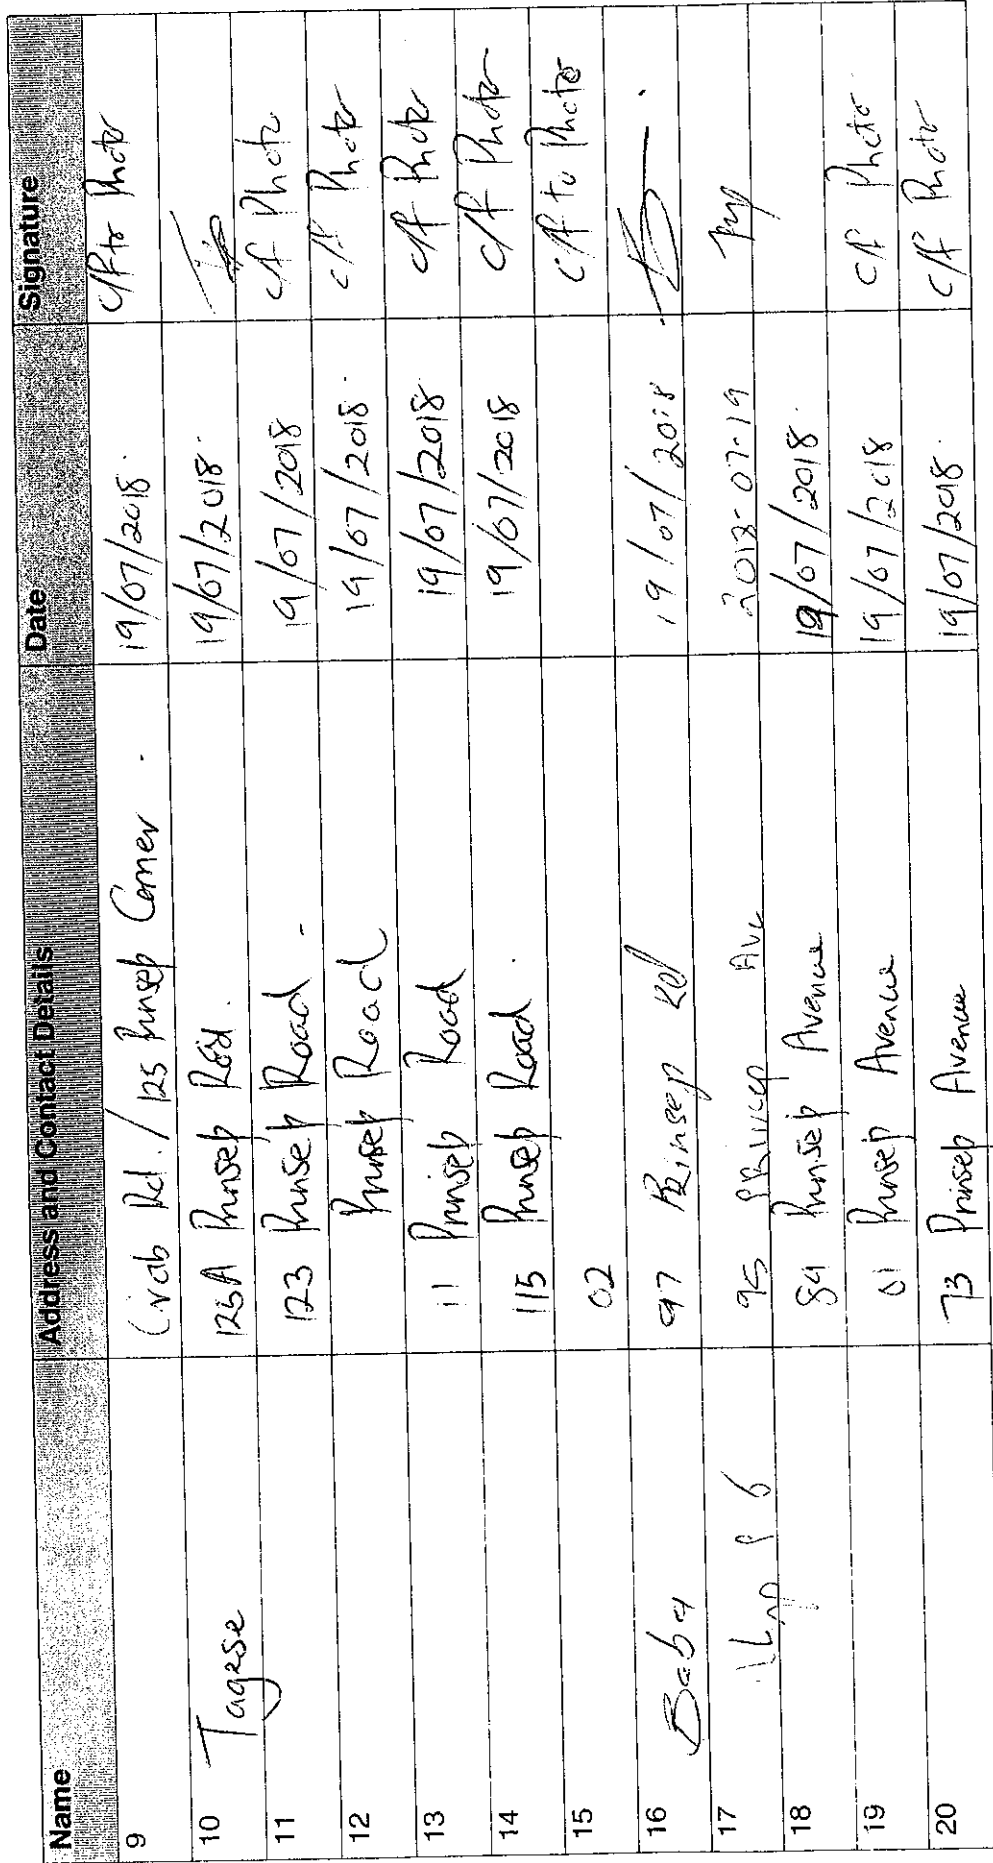 Name Address and Contact Details Date Signature
9 Rd. / 125 Prinsep Corner 19/07/2018. c/f to Photo
10 Tagese 125A Prinsep Road. 19/07/2018.
11 123 Prinsep Road 19/07/2018 c/f Photo
12 Prinsep Road 19/07/2018. c/f Photo
13 11 Prinsep Road 19/07/2018 c/f Photo
14 115 Prinsep Road 19/07/2018 c/f Photo
15 02 c/f to Photo
16 Baba 97 Prinsep Rd 19/07/2018
17 95 Ave 2018-07-19
18 89 Prinsep Avenue 19/07/2018.
19 01 Prinsep Avenue 19/07/2018 c/f Photo
20 73 Prinsep Avenue 19/07/2018. c/f Photo